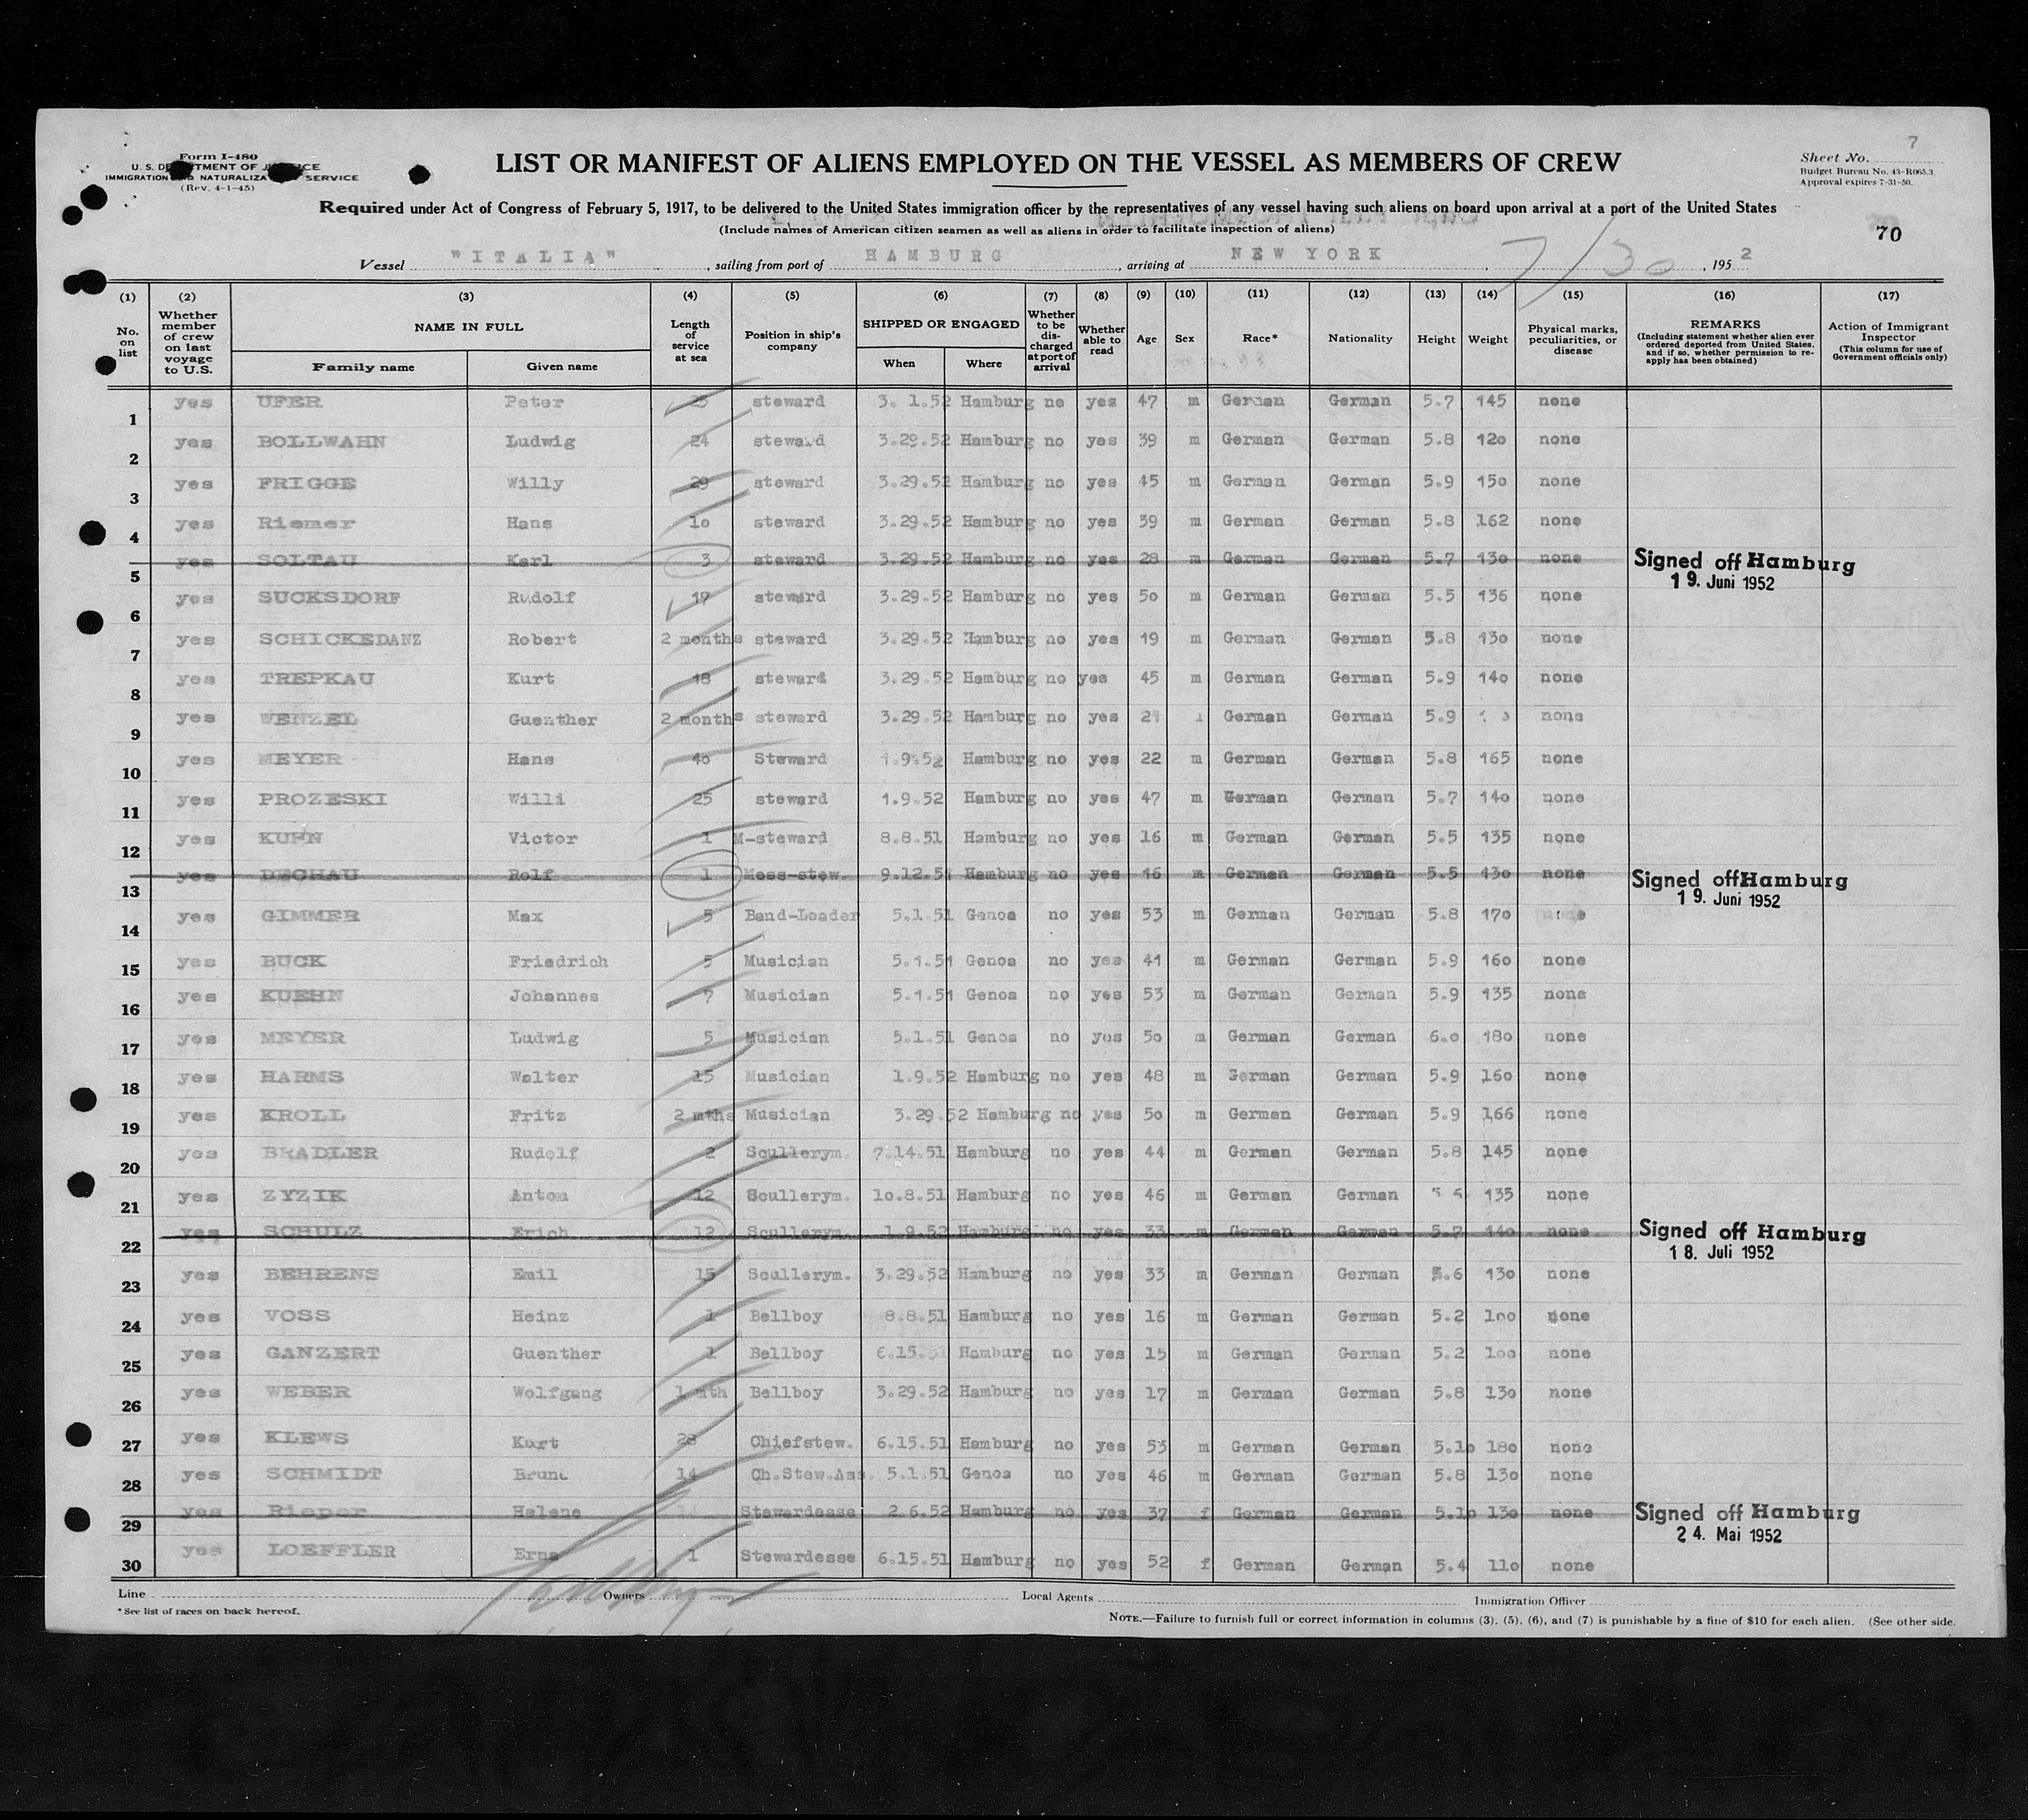 Form I-480
U. S. DEPARTMENT OF JUSTICE
IMMIGRATION AND NATURALIZATION SERVICE
(Rev. 4-1-45)
LIST OR MANIFEST OF ALIENS EMPLOYED ON THE VESSEL AS MEMBERS OF CREW
Sheet No. 7
Budget Bureau No. 43-R065.3.
Approval expires 7-31-50.
Required under Act of Congress of February 5, 1917, to be delivered to the United States immigration officer by the representatives of any vessel having such aliens on board upon arrival at a port of the United States
(Include names of American citizen seamen as well as aliens in order to facilitate inspection of aliens)
70
Vessel "ITALIA", sailing from port of HAMBURG, arriving at NEW YORK, 7/30, 1952
(1) (2) (3) (4) (5) (6) (7) (8) (9) (10) (11) (12) (13) (14) (15) (16) (17)
No. on list | Whether member of crew on last voyage to U.S. | NAME IN FULL Family name Given name | Length of service at sea | Position in ship's company | SHIPPED OR ENGAGED When Where | Whether to be discharged at port of arrival | Whether able to read | Age | Sex | Race* | Nationality | Height | Weight | Physical marks, peculiarities, or disease | REMARKS (Including statement whether alien ever ordered deported from United States, and if so, whether permission to reapply has been obtained) | Action of Immigrant Inspector (This column for use of Government officials only)
1 yes UFER Peter 25 steward 3. 1.52 Hamburg no yes 47 m German German 5.7 145 none
2 yes BOLLWAHN Ludwig 24 steward 3.29.52 Hamburg no yes 39 m German German 5.8 120 none
3 yes FRIGGE Willy 29 steward 3.29.52 Hamburg no yes 45 m German German 5.9 150 none
4 yes Riemer Hans 10 steward 3.29.52 Hamburg no yes 39 m German German 5.8 162 none
5 yes SOLTAU Karl 3 steward 3.29.52 Hamburg no yes 28 m German German 5.7 130 none Signed off Hamburg 19. Juni 1952
6 yes SUCKSDORF Rudolf 19 steward 3.29.52 Hamburg no yes 50 m German German 5.5 136 none
7 yes SCHICKEDANZ Robert 2 months steward 3.29.52 Hamburg no yes 19 m German German 5.8 130 none
8 yes TREPKAU Kurt 18 steward 3.29.52 Hamburg no yes 45 m German German 5.9 140 none
9 yes WENZEL Guenther 2 months steward 3.29.52 Hamburg no yes 21 German German 5.9 none
10 yes MEYER Hans 40 Steward 1.9.52 Hamburg no yes 22 m German German 5.8 165 none
11 yes PROZESKI Willi 25 steward 1.9.52 Hamburg no yes 47 m German German 5.7 140 none
12 yes KUHN Victor 1 M-steward 8.8.51 Hamburg no yes 16 m German German 5.5 135 none
13 yes DECHAU Rolf 1 Mess-stew. 9.12.51 Hamburg no yes 16 m German German 5.5 130 none Signed off Hamburg 19. Juni 1952
14 yes GIMMER Max 5 Band-Leader 5.1.51 Genoa no yes 53 m German German 5.8 170
15 yes BUCK Friedrich 5 Musician 5.1.51 Genoa no yes 41 m German German 5.9 160 none
16 yes KUEHN Johannes 7 Musician 5.1.51 Genoa no yes 53 m German German 5.9 135 none
17 yes MEYER Ludwig 5 Musician 5.1.51 Genoa no yes 50 m German German 6.0 180 none
18 yes HARMS Walter 15 Musician 1.9.52 Hamburg no yes 48 m German German 5.9 160 none
19 yes KROLL Fritz 2 mths Musician 3.29.52 Hamburg no yes 50 m German German 5.9 166 none
20 yes BRADLER Rudolf 2 Scullerym. 7.14.51 Hamburg no yes 44 m German German 5.8 145 none
21 yes ZYZIK Anton 12 Scullerym. 10.8.51 Hamburg no yes 46 m German German 5 6 135 none
22 yes SCHULZ Erich 12 Scullerym. 1.9.52 Hamburg no yes 33 m German German 5.7 140 none Signed off Hamburg 18. Juli 1952
23 yes BEHRENS Emil 15 Scullerym. 3.29.52 Hamburg no yes 33 m German German 5.6 130 none
24 yes VOSS Heinz 1 Bellboy 8.8.51 Hamburg no yes 16 m German German 5.2 100 none
25 yes GANZERT Guenther 1 Bellboy 6.15.51 Hamburg no yes 15 m German German 5.2 100 none
26 yes WEBER Wolfgang 1 mth Bellboy 3.29.52 Hamburg no yes 17 m German German 5.8 130 none
27 yes KLEWS Kurt 28 Chiefstew. 6.15.51 Hamburg no yes 53 m German German 5.10 180 none
28 yes SCHMIDT Bruno 14 Ch.Stew.Ass. 5.1.51 Genoa no yes 46 m German German 5.8 130 none
29 yes Rieper Helene Stewardesse 2.6.52 Hamburg no yes 37 f German German 5.10 130 none Signed off Hamburg 24. Mai 1952
30 yes LOEFFLER Erna 1 Stewardesse 6.15.51 Hamburg no yes 52 f German German 5.4 110 none
Line Owners Local Agents Immigration Officer
*See list of races on back hereof.
NOTE.—Failure to furnish full or correct information in columns (3), (5), (6), and (7) is punishable by a fine of $10 for each alien. (See other side.